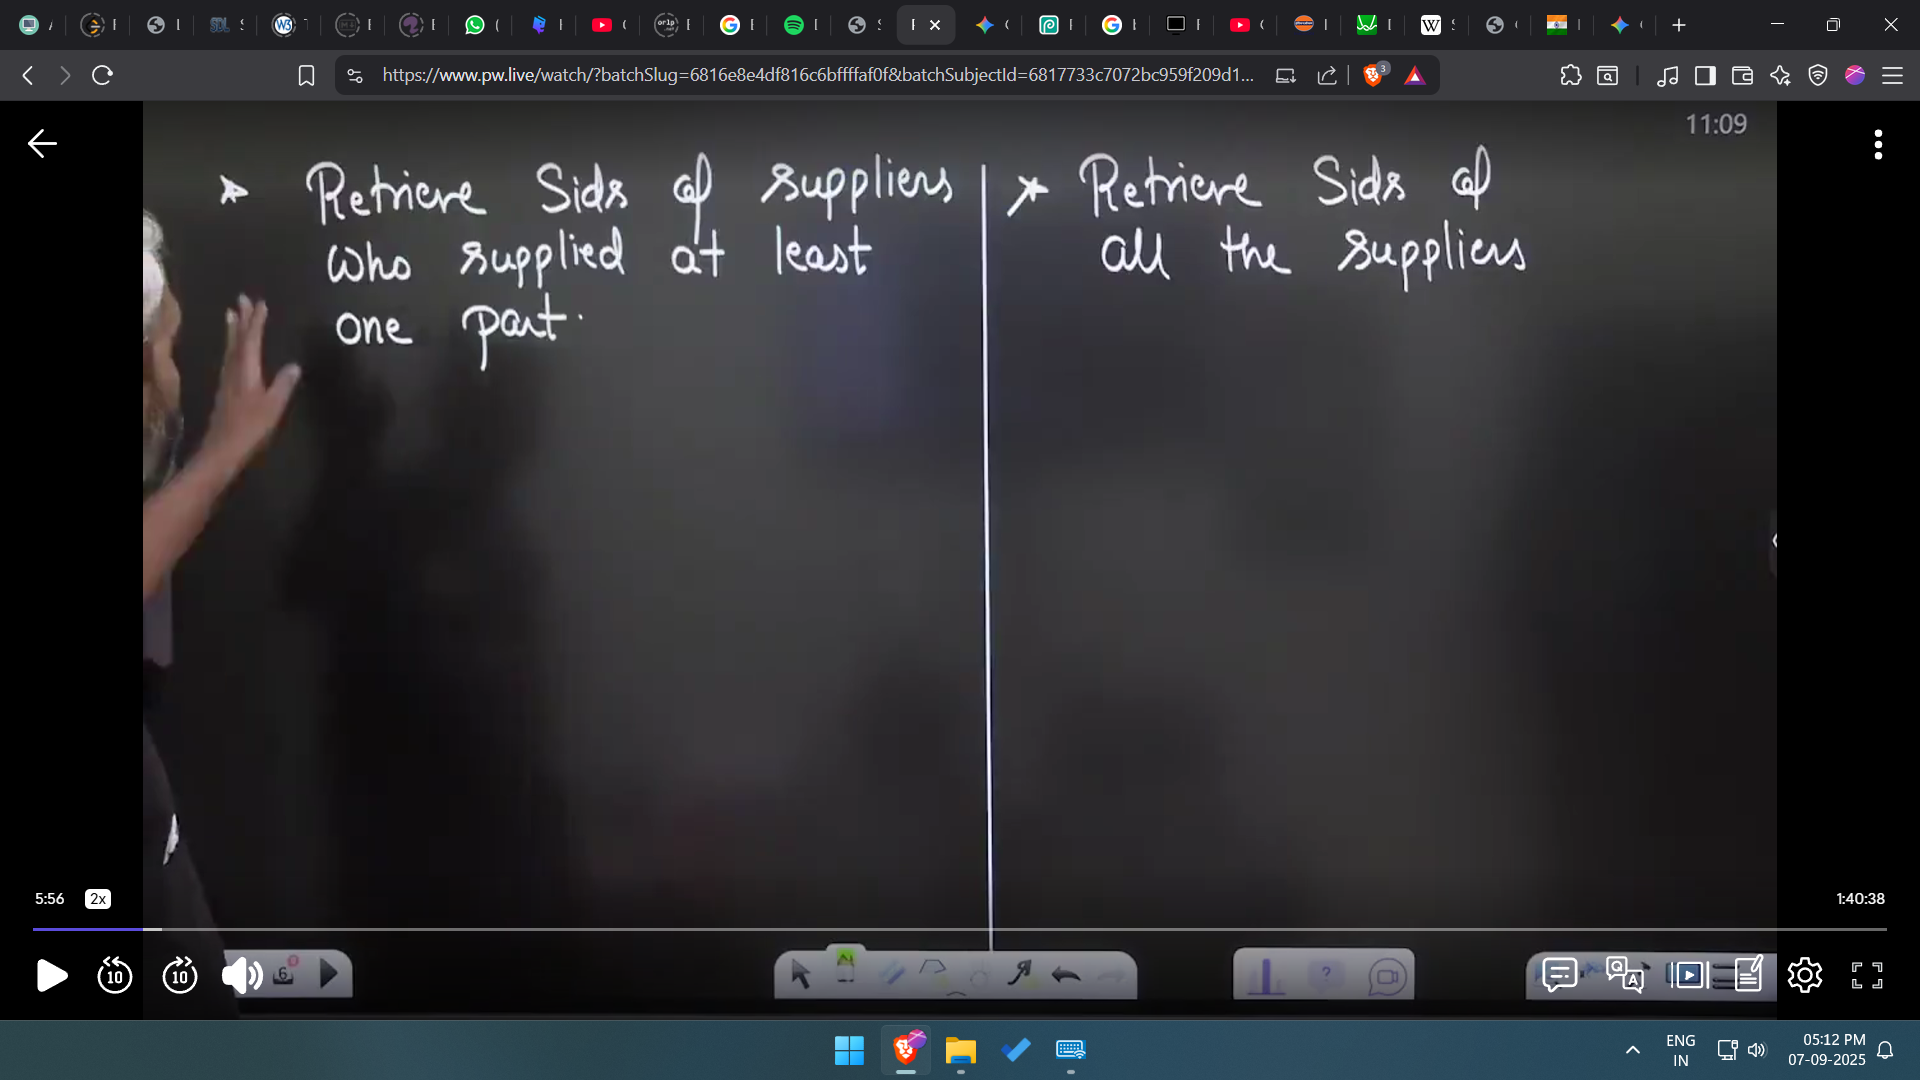 https://www.pw.live/watch/?batchSlug=6816e8e4df816c6bffffaf0f&batchSubjectId=6817733c7072bc959f209d1...
3
11:09
Retrieve Sids of suppliers
who supplied at least
one part.
Retrieve Sids of
all the suppliers
5:56 2x
1:40:38
10 10
6
ENG
IN
05:12 PM
07-09-2025